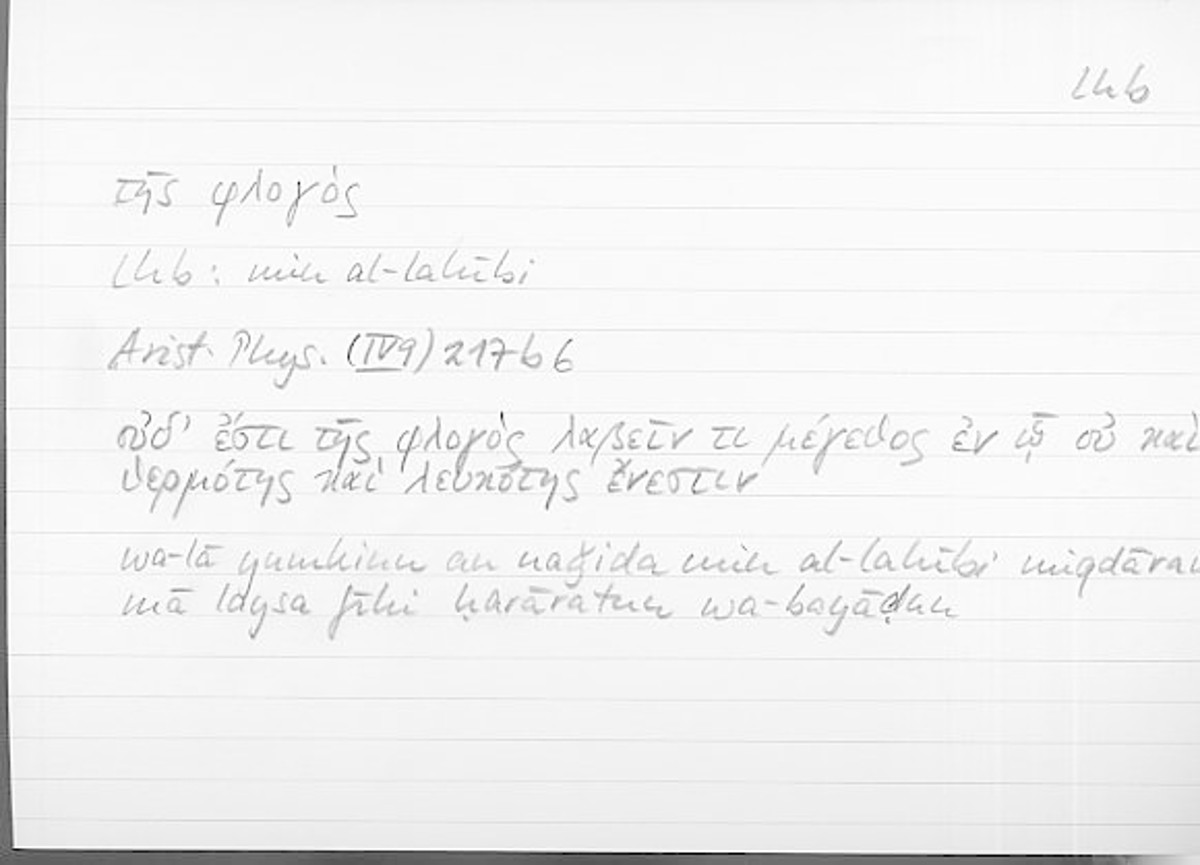 lhb
τῆς φλογὸς
lhb: min al-lahībi
Arist. Phys. (IV9) 217b6
οὐδ' ἔστι τῆς φλογὸς λαβεῖν τι μέγεθος ἐν ᾧ οὐ καὶ
θερμότης καὶ λευκότης ἔνεστιν
wa-lā yumkinu an naǧida min al-lahībi miqdāran
mā laysa fīhi ḥarāratun wa-bayāḍun